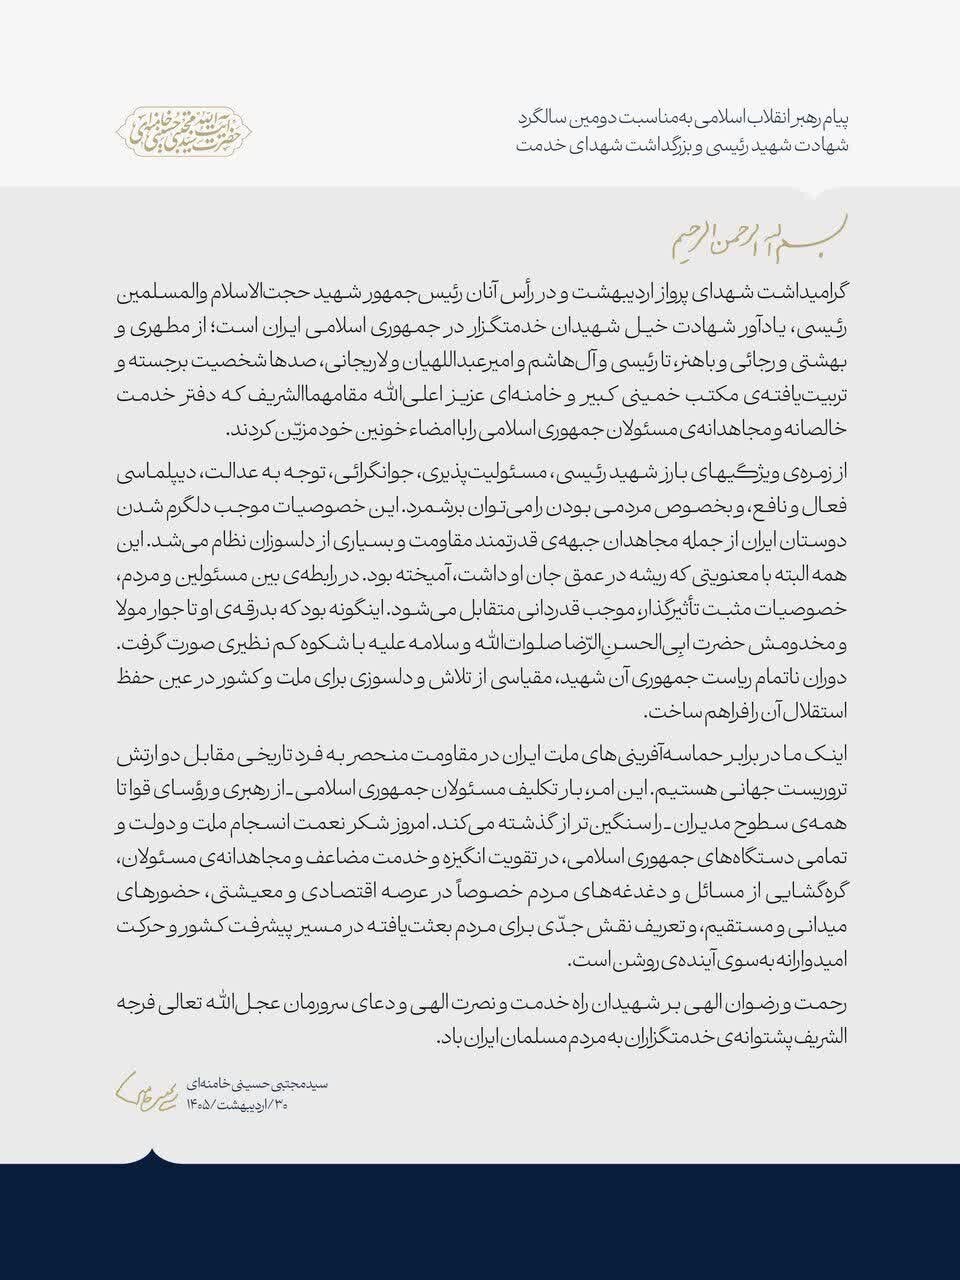 پیام رهبر انقلاب اسلامی به‌مناسبت دومین سالگرد
شهادت شهید رئیسی و بزرگداشت شهدای خدمت
حضرت آیت‌الله سید مجتبی حسینی خامنه‌ای
بسم الله الرحمن الرحیم
گرامیداشت شهدای پرواز اردیبهشت و در رأس آنان رئیس‌جمهور شهید حجت‌الاسلام والمسلمین
رئیسی، یادآور شهادت خیل شهیدان خدمتگزار در جمهوری اسلامی ایران است؛ از مطهری و
بهشتی و رجائی و باهنر، تا رئیسی و آل‌هاشم و امیرعبداللهیان و لاریجانی، صدها شخصیت برجسته و
تربیت‌یافته‌ی مکتب خمینی کبیر و خامنه‌ای عزیز اعلی‌الله مقامهماالشریف که دفتر خدمت
خالصانه و مجاهدانه‌ی مسئولان جمهوری اسلامی را با امضاء خونین خود مزیّن کردند.
از زمره‌ی ویژگیهای بارز شهید رئیسی، مسئولیت‌پذیری، جوانگرائی، توجه به عدالت، دیپلماسی
فعال و نافع، و بخصوص مردمی بودن را می‌توان برشمرد. این خصوصیات موجب دلگرم شدن
دوستان ایران از جمله مجاهدان جبهه‌ی قدرتمند مقاومت و بسیاری از دلسوزان نظام می‌شد. این
همه البته با معنویتی که ریشه در عمق جان او داشت، آمیخته بود. در رابطه‌ی بین مسئولین و مردم،
خصوصیات مثبت تأثیرگذار، موجب قدردانی متقابل می‌شود. اینگونه بود که بدرقه‌ی او تا جوار مولا
و مخدومش حضرت ابی‌الحسنِ‌الرّضا صلوات‌الله و سلامه علیه با شکوه کم نظیری صورت گرفت.
دوران ناتمام ریاست جمهوری آن شهید، مقیاسی از تلاش و دلسوزی برای ملت و کشور در عین حفظ
استقلال آن را فراهم ساخت.
اینک ما در برابر حماسه‌آفرینی‌های ملت ایران در مقاومت منحصر به فرد تاریخی مقابل دو ارتش
تروریست جهانی هستیم. این امر، بار تکلیف مسئولان جمهوری اسلامی ـ از رهبری و رؤسای قوا تا
همه‌ی سطوح مدیران ـ را سنگین‌تر از گذشته می‌کند. امروز شکر نعمت انسجام ملت و دولت و
تمامی دستگاه‌های جمهوری اسلامی، در تقویت انگیزه و خدمت مضاعف و مجاهدانه‌ی مسئولان،
گره‌گشایی از مسائل و دغدغه‌های مردم خصوصاً در عرصه اقتصادی و معیشتی، حضورهای
میدانی و مستقیم، و تعریف نقش جدّی برای مردم بعثت‌یافته در مسیر پیشرفت کشور و حرکت
امیدوارانه به‌سوی آینده‌ی روشن است.
رحمت و رضوان الهی بر شهیدان راه خدمت و نصرت الهی و دعای سرورمان عجل‌الله تعالی فرجه
الشریف پشتوانه‌ی خدمتگزاران به مردم مسلمان ایران باد.
سیدمجتبی حسینی خامنه‌ای
۳۰/اردیبهشت/۱۴۰۵